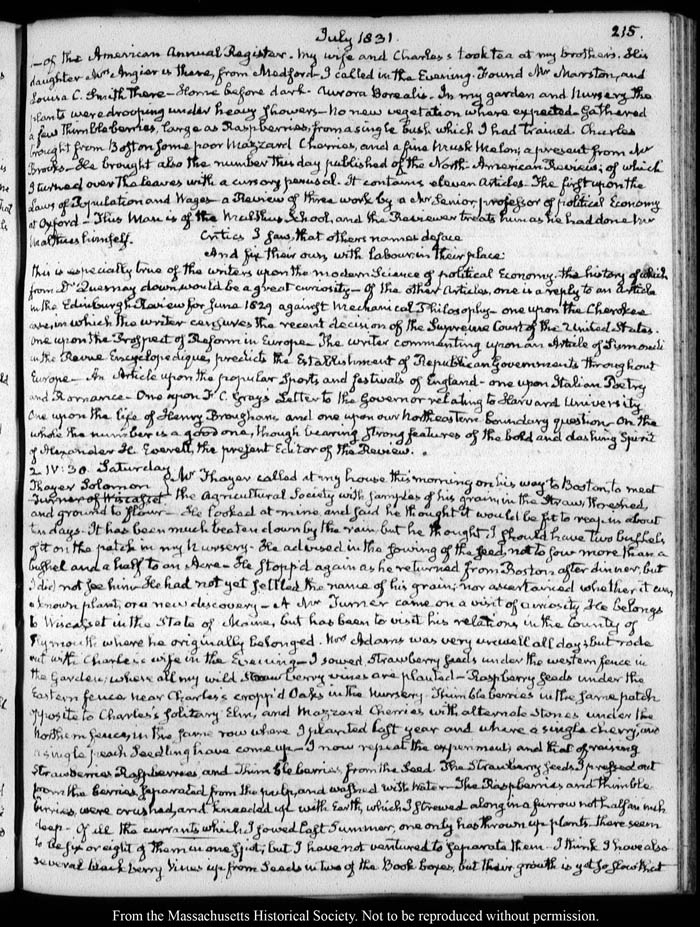 July 1831.
215.
—of the American Annual Register. My wife and Charles's took tea at my brothers. His
daughter Mrs Angier is there, from Medford—I called in the Evening. Found Mr Marston, and
Louisa C. Smith there—Home before dark. Aurora Borealis. In my garden and Nursery the
plants were drooping under heavy showers—No new vegetation where expected. Gathered
a few Thimbleberries, large as Raspberries, from a single bush which I had trained. Charles
brought from Boston some poor Mazzard Cherries, and a fine Musk Melon; a present from Mr
Brooks—He brought also the number this day published of the North-American Review; of which
I turned over the leaves with a cursory perusal. It contains eleven Articles. The first upon the
Laws of Population and Wages—a Review of three work by a Mr Senior, professor of political Economy
at Oxford—This Man is of the Malthus School, and the Reviewer treats him as he had done Mr
Malthus himself. Critics I saw, that others names deface
And fix their own with labour in their place:
this is especially true of the writers upon the modern Science of political Economy, the history of which
from Dr Quesnay down, would be a great curiosity—Of the other Articles, one is a reply to an Article
in the Edinburgh Review for June 1829 against Mechanical Philosophy—one upon the Cherokee
case, in which the writer censures the recent decision of the Supreme Court of the United States.
One upon the Prospect of Reform in Europe—The writer commenting upon an Article of Sismondi
in the Revue Encyclopedique, predicts the Establishment of Republican Governments throughout
Europe—An Article upon the popular Sports and festivals of England—one upon Italian Poetry
and Romance—One upon F. C. Gray's Letter to the Governor relating to Harvard University
One upon the life of Henry Brougham; and one upon our northeastern boundary question—On the
whole the number is a good one, though bearing strong features of the bold and dashing Spirit
of Alexander H. Everett, the present Editor of the Review.
2. IV:30. Saturday
Thayer Solomon Mr Thayer called at my house this morning on his way to Boston, to meet
Turner of Wiscasset the Agricultural Society with samples of his grain, in the Straw, threshed,
and ground to flour—He looked at mine and said he thought it would be fit to reap in about
ten days. It has been much beaten down by the rain but he thought, I should have two bushels
of it on the patch in my Nursery—He advised in the sowing of the seed, not to sow more than a
bushel and a half to an Acre—He stopp'd again as he returned from Boston after dinner, but
I did not see him—He had not yet settled the name of his grain; nor ascertained whether it was
a known plant, or a new discovery—A Mr Turner came on a visit of curiosity. He belongs
to Wiscasset in the State of Maine, but has been to visit his relations in the County of
Plymouth where he originally belonged. Mrs Adams was very unwell all day; but rode
out with Charles's wife in the Evening—I sowed Strawberry seeds under the western fence in
the Garden, where all my wild Strawberry vines are planted—Raspberry seeds under the
Eastern fence near Charles's cropp'd Oaks in the Nursery. Thimbleberries in the same patch
opposite to Charles's solitary Elm, and Mazzard Cherries with alternate Stones under the
Northern fence; in the same row where I planted last year and where a single cherry, and
a single peach Seedling have come up—I now repeat the experiment; and that of raising
Strawberries Raspberries and Thimbleberries from the Seed. The Strawberry seeds I pressed out
from the berries, separated from the pulp, and washed with water—The Raspberries and thimble
berries, were crushed, and kneaded up with Earth, which I strewed along in a furrow not half an inch
deep—Of all the currants which I sowed last Summer, one only has thrown up plants. there seem
to be six or eight of them in one spot; but I have not ventured to separate them. I think I have also
several black berry vines up from Seeds in two of the Book boxes, but their growth is yet so slow that
From the Massachusetts Historical Society. Not to be reproduced without permission.